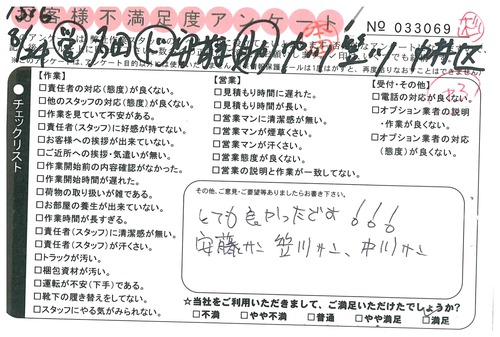 お客様不満足度アンケート
No 033069
チェックリスト
【作業】
□責任者の対応(態度)が良くない。
□他のスタッフの対応(態度)が良くない。
□作業を見ていて不安がある。
□責任者(スタッフ)に好感が持てない。
□お客様への挨拶が出来ていない。
□ご近所への挨拶・気遣いが無い。
□作業開始前の内容確認がなかった。
□作業開始時間が遅れた。
□荷物の取り扱いが雑である。
□お部屋の養生が出来ていない。
□作業時間が長すぎる。
□責任者(スタッフ)に清潔感が無い。
□責任者(スタッフ)が汗くさい。
□トラックが汚い。
□梱包資材が汚い。
□運転が不安(下手)である。
□靴下の履き替えをしてない。
□スタッフにやる気がみられない。
【営業】
□見積もり時間に遅れた。
□見積もり時間が長い。
□営業マンに清潔感が無い。
□営業マンが煙草くさい。
□営業マンが汗くさい。
□営業態度が良くない。
□営業の説明と作業が一致してない。
【受付・その他】
□電話の対応が良くない。
□オプション業者の説明
・作業が良くない。
□オプション業者の対応
(態度)が良くない。
その他、ご意見・ご要望等ありましたらお書き下さい。
とても良かったです!!!
安藤さん 笠川さん、中川さん
☆当社をご利用いただきまして、ご満足いただけたでしょうか?
□不満 □やや不満 □普通 □やや満足 □満足